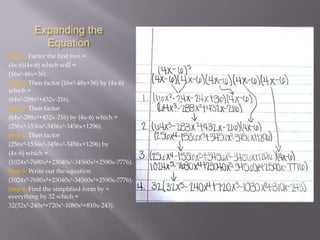 Expanding the
Equation
Step 1: Factor the first two =
(4x-6)(4x-6) which will =
(16x²-48x+36).
Step 2: Then factor (16x²-48x+36) by (4x-6)
which =
(64x³-288x²+432x-216).
Step 3: Then factor
(64x³-288x²+432x-216) by (4x-6) which =
(256x⁴-1536x³-3456x²-3456x+1296).
Step 4: Then factor
(256x⁴-1536x³-3456x²-3456x+1296) by
(4x-6) which =
(1024x⁵-7680x⁴+23040x³-34560x²+2590x-7776).
Step 5: Write out the equation
(1024x⁵-7680x⁴+23040x³-34560x²+2590x-7776).
Step 6: Find the simplified form by ÷
everything by 32 which =
32(32x⁵-240x⁴+720x³-1080x²+810x-243).
(4x-6)⁵
(4x-6)(4x-6)(4x-6)(4x-6)(4x-6)
1. (16x²-24x-24x+36)(4x-6)
(64x³-288x²+432x-216)
2. (64x³-288x²+432x-216)(4x-6)
3.
4. 32(32x⁵-240x⁴+720x³-1080x²+810x-243)